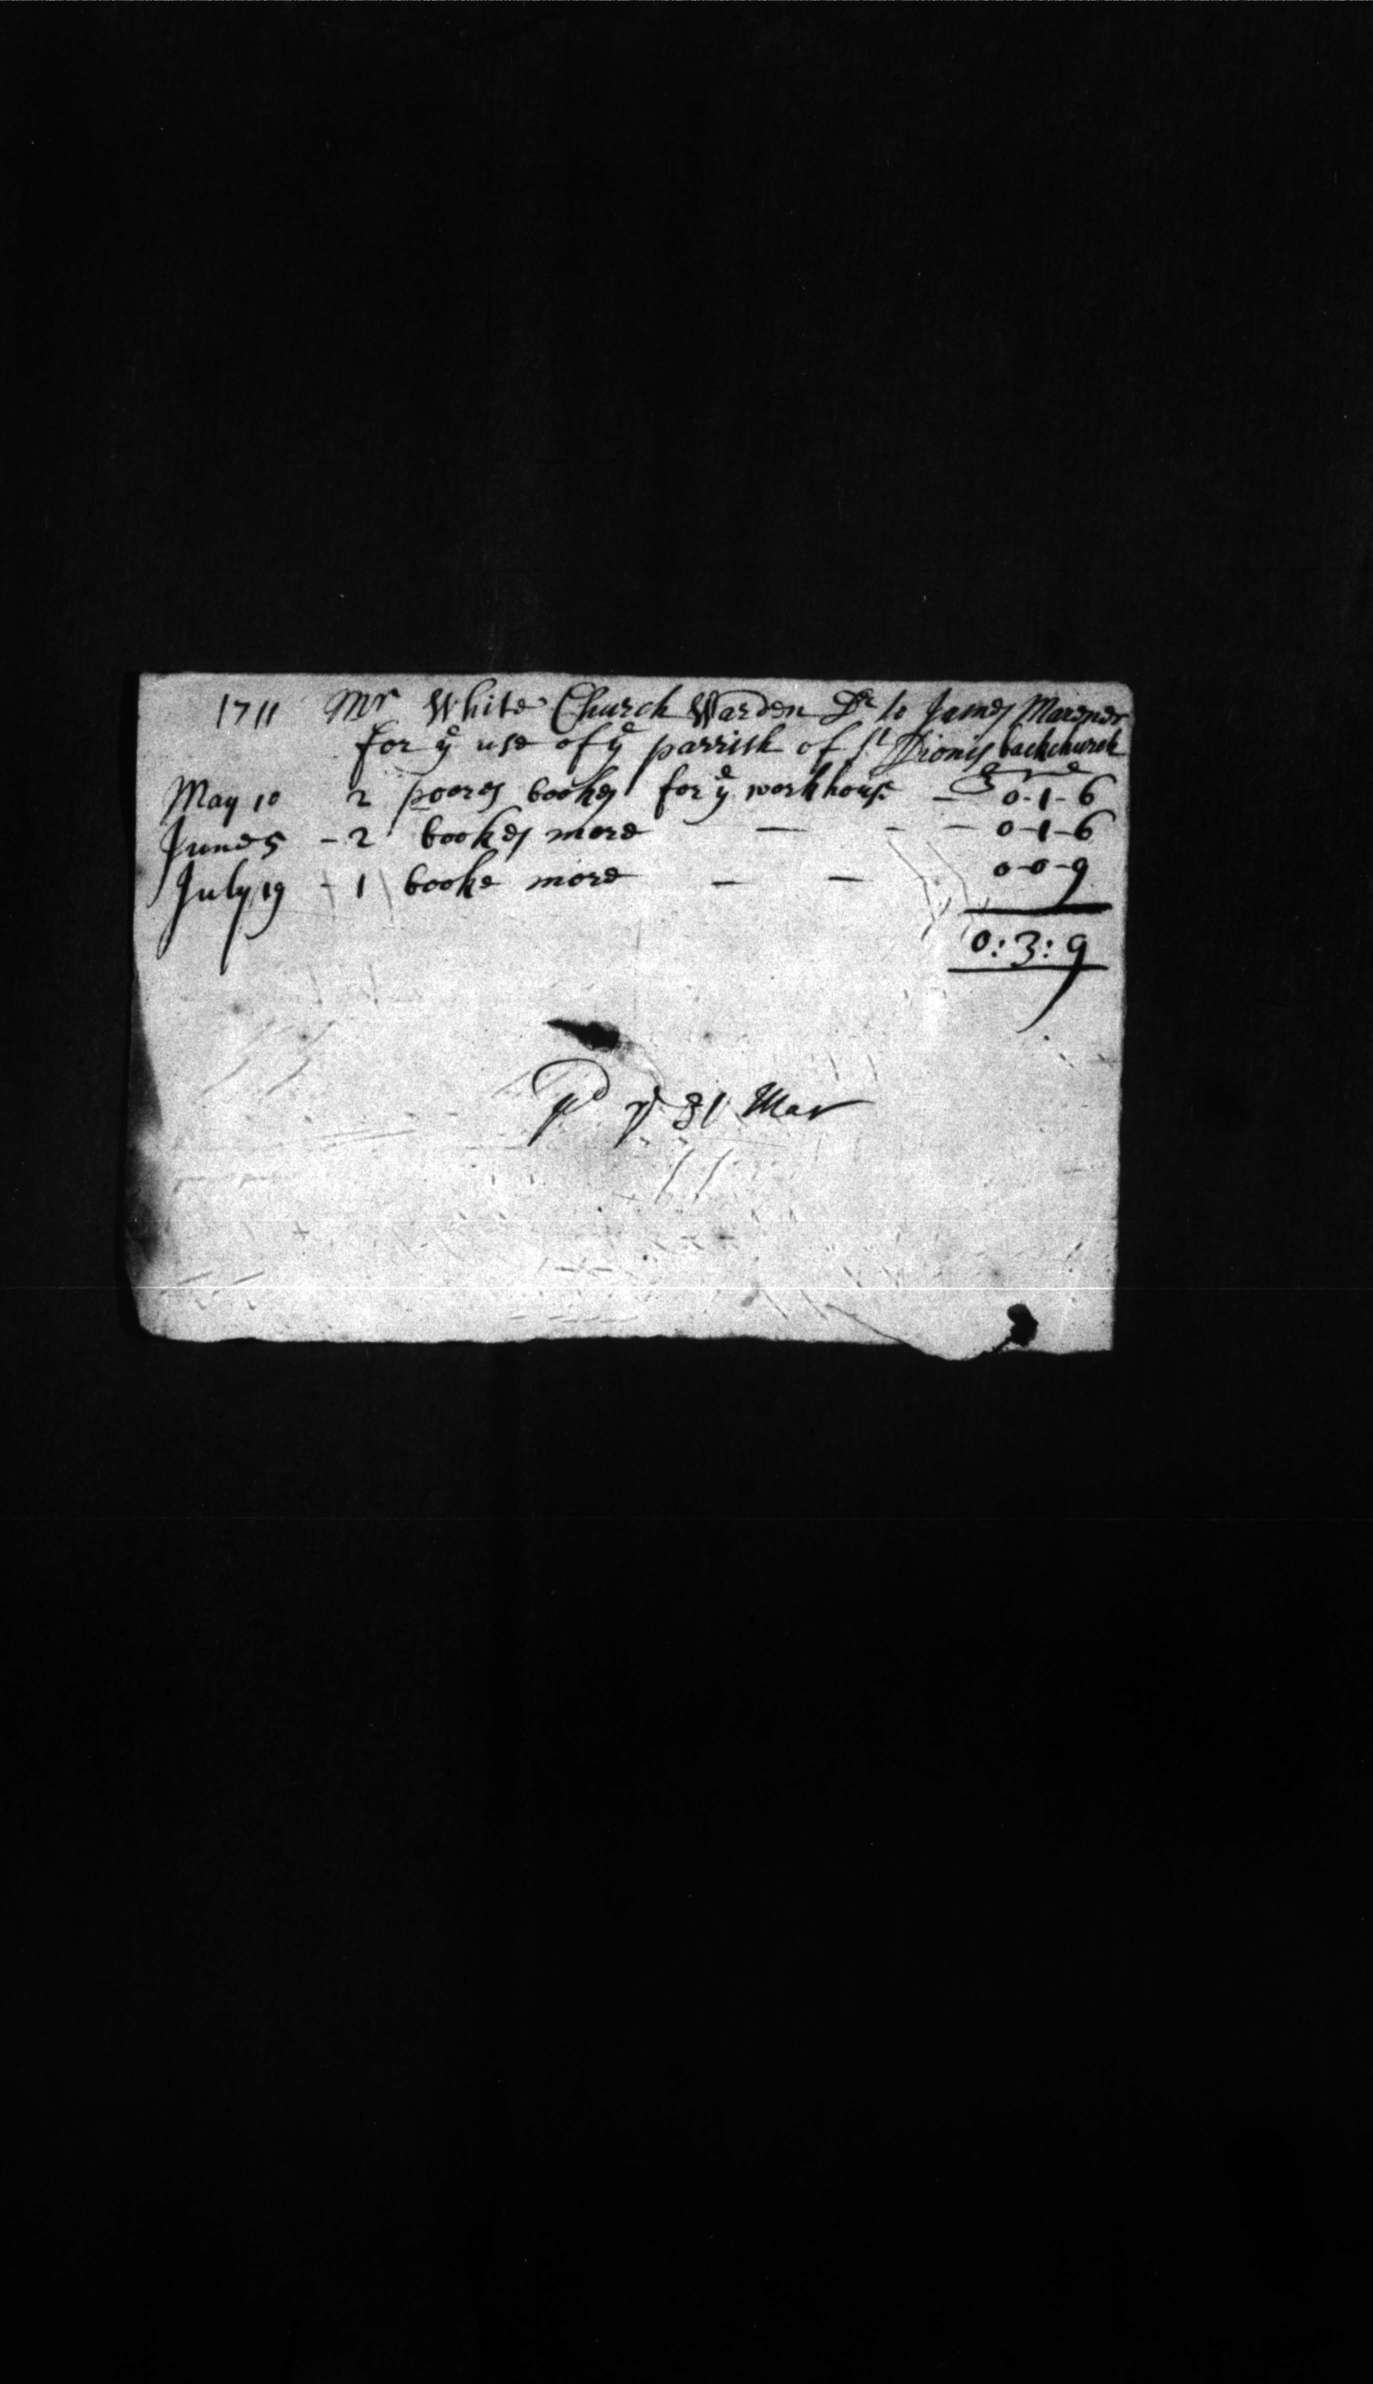 1711 Mr White Church Warden Dr to James
for ye use of ye parrish of St Dionis backchurch
May 10 2 poores bookes for ye workhouse — 0-1-6
June 5 - 2 bookes more — - — 0-1-6
July 19 - 1 booke more — — 0-0-9
0:3:9
pd ye 31 Mar